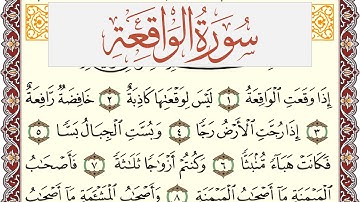 سُورَةُ الْوَاقِعَةِ
إِذَا وَقَعَتِ الْوَاقِعَةُ ١ لَيْسَ لِوَقْعَتِهَا كَاذِبَةٌ ٢ خَافِضَةٌ رَّافِعَةٌ
٣ إِذَا رُجَّتِ الْأَرْضُ رَجًّا ٤ وَبُسَّتِ الْجِبَالُ بَسًّا ٥
فَكَانَتْ هَبَاءً مُّنۢبَثًّا ٦ وَكُنتُمْ أَزْوَاجًا ثَلَاثَةً ٧ فَأَصْحَابُ
الْمَيْمَنَةِ مَا أَصْحَابُ الْمَيْمَنَةِ ٨ وَأَصْحَابُ الْمَشْأَمَةِ مَا أَصْحَابُ